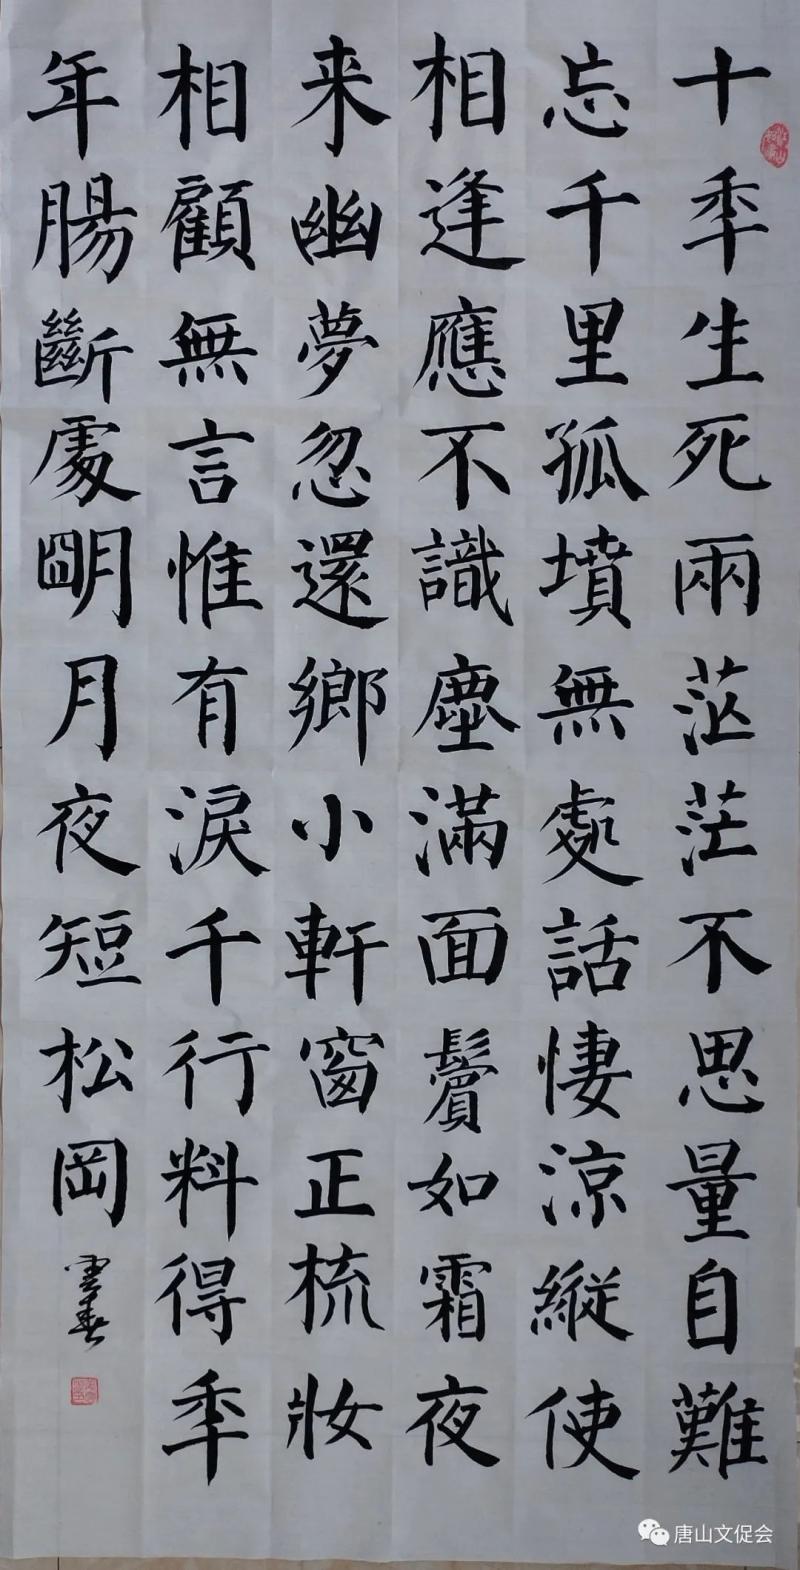 十年生死兩茫茫不思量自難
忘千里孤墳無處話悽涼縱使
相逢應不識塵滿面鬢如霜夜
来幽夢忽還鄉小軒窗正梳妝
相顧無言惟有淚千行料得年
年腸斷處明月夜短松岡
唐山文促会